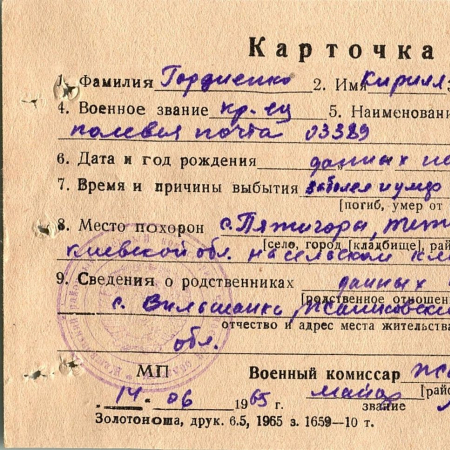 Карточка
1. Фамилия Гордиенко 2. Имя Кирилл
4. Военное звание кр-ец 5. Наименовани
полевая почта 03389
6. Дата и год рождения данных не
7. Время и причины выбытия заболел и умер
[погиб, умер от
8. Место похорон с. Пятигоры, Тети
[село, город [кладбище], рай
Киевской обл. на сельском кл
9. Сведения о родственниках данных
[родственное отношен
с. Вильшанка, Жашковски
отчество и адрес места жительства
обл.
МП Военный комиссар Жа
майор [рай
14. 06 1965 г. звание
Золотоноша, друк. 6.5, 1965 з. 1659—10 т.